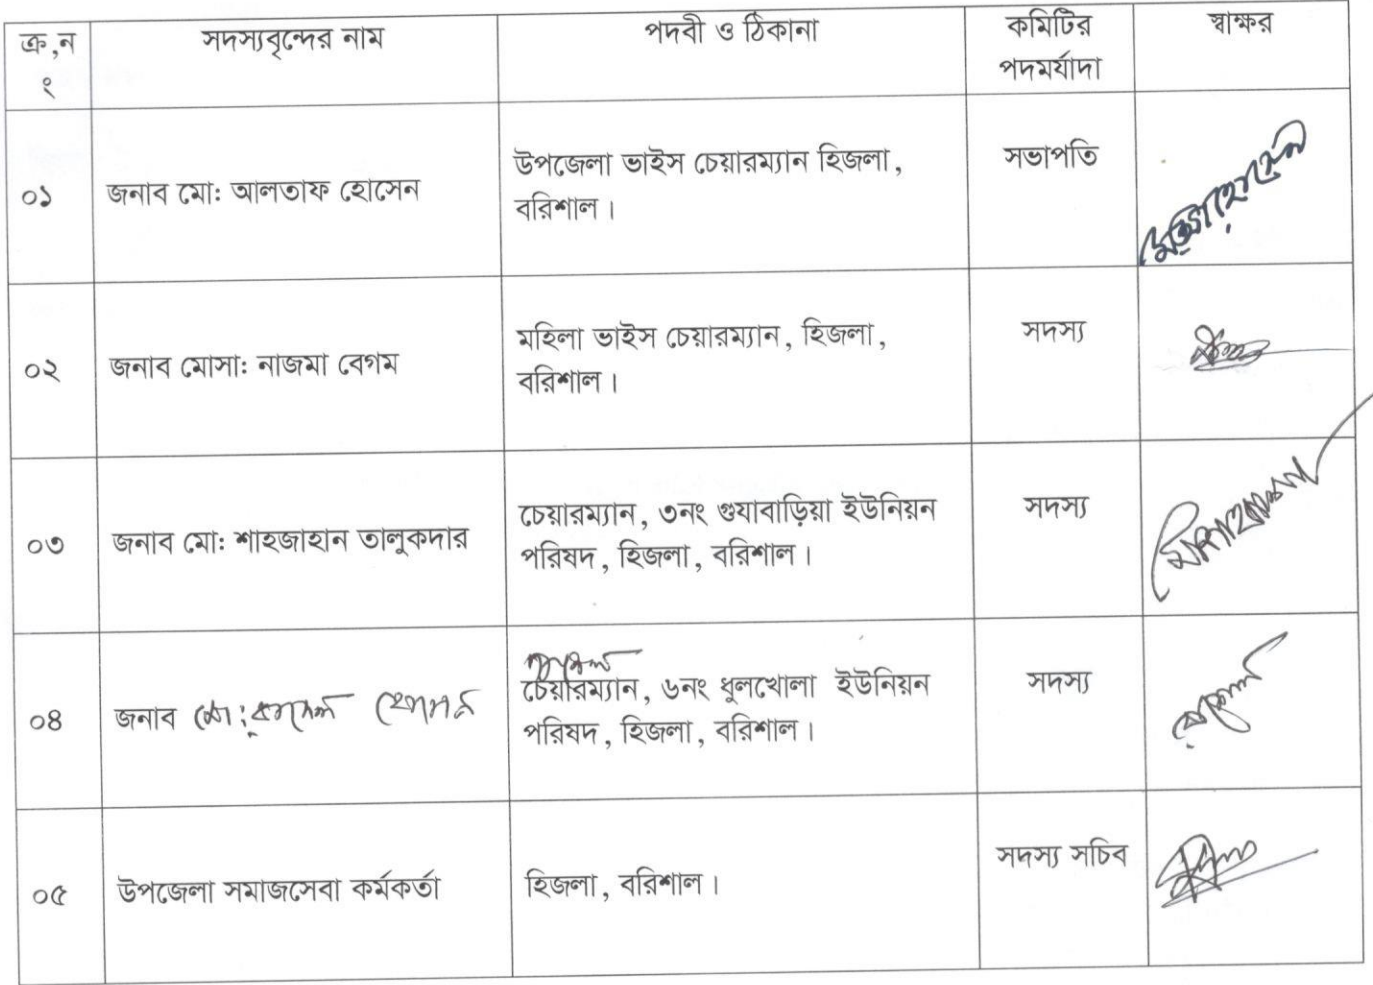 ক্র,ন ং সদস্যবৃন্দের নাম পদবী ও ঠিকানা কমিটির পদমর্যাদা স্বাক্ষর
০১ জনাব মো: আলতাফ হোসেন উপজেলা ভাইস চেয়ারম্যান হিজলা, বরিশাল। সভাপতি
০২ জনাব মোসা: নাজমা বেগম মহিলা ভাইস চেয়ারম্যান, হিজলা, বরিশাল। সদস্য
০৩ জনাব মো: শাহজাহান তালুকদার চেয়ারম্যান, ৩নং গুয়াবাড়িয়া ইউনিয়ন পরিষদ, হিজলা, বরিশাল। সদস্য
০৪ জনাব মো: চেয়ারম্যান, ৬নং ধুলখোলা ইউনিয়ন পরিষদ, হিজলা, বরিশাল। সদস্য
০৫ উপজেলা সমাজসেবা কর্মকর্তা হিজলা, বরিশাল। সদস্য সচিব